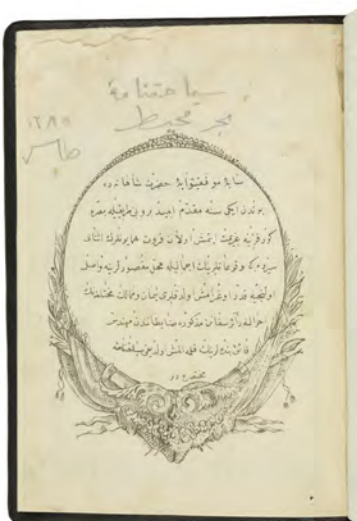 سياحتنامهٔ
بحر محيط
١٢٨٥
سايهٔ موفقيتوايهٔ حضرت شاهانه ده
بوندن ايكى سنه مقدم اميد برونى طريقيله بصره
كورفزينه عزيمت ايتمش اولان قروت همايونلرك اثناى
سير و وقوعاتلرينك اجماليله محل مقصودلرينه واصل
اولنجيه قدر اوغرامش اولدقلرى ليمان وممالك مختلفه نك
احوالنه دائر سفائن مذكوره ضابطانندن مهندس
فائق بنده لرينك قلمه المش اولديغى سياحتنامه
مختصره در